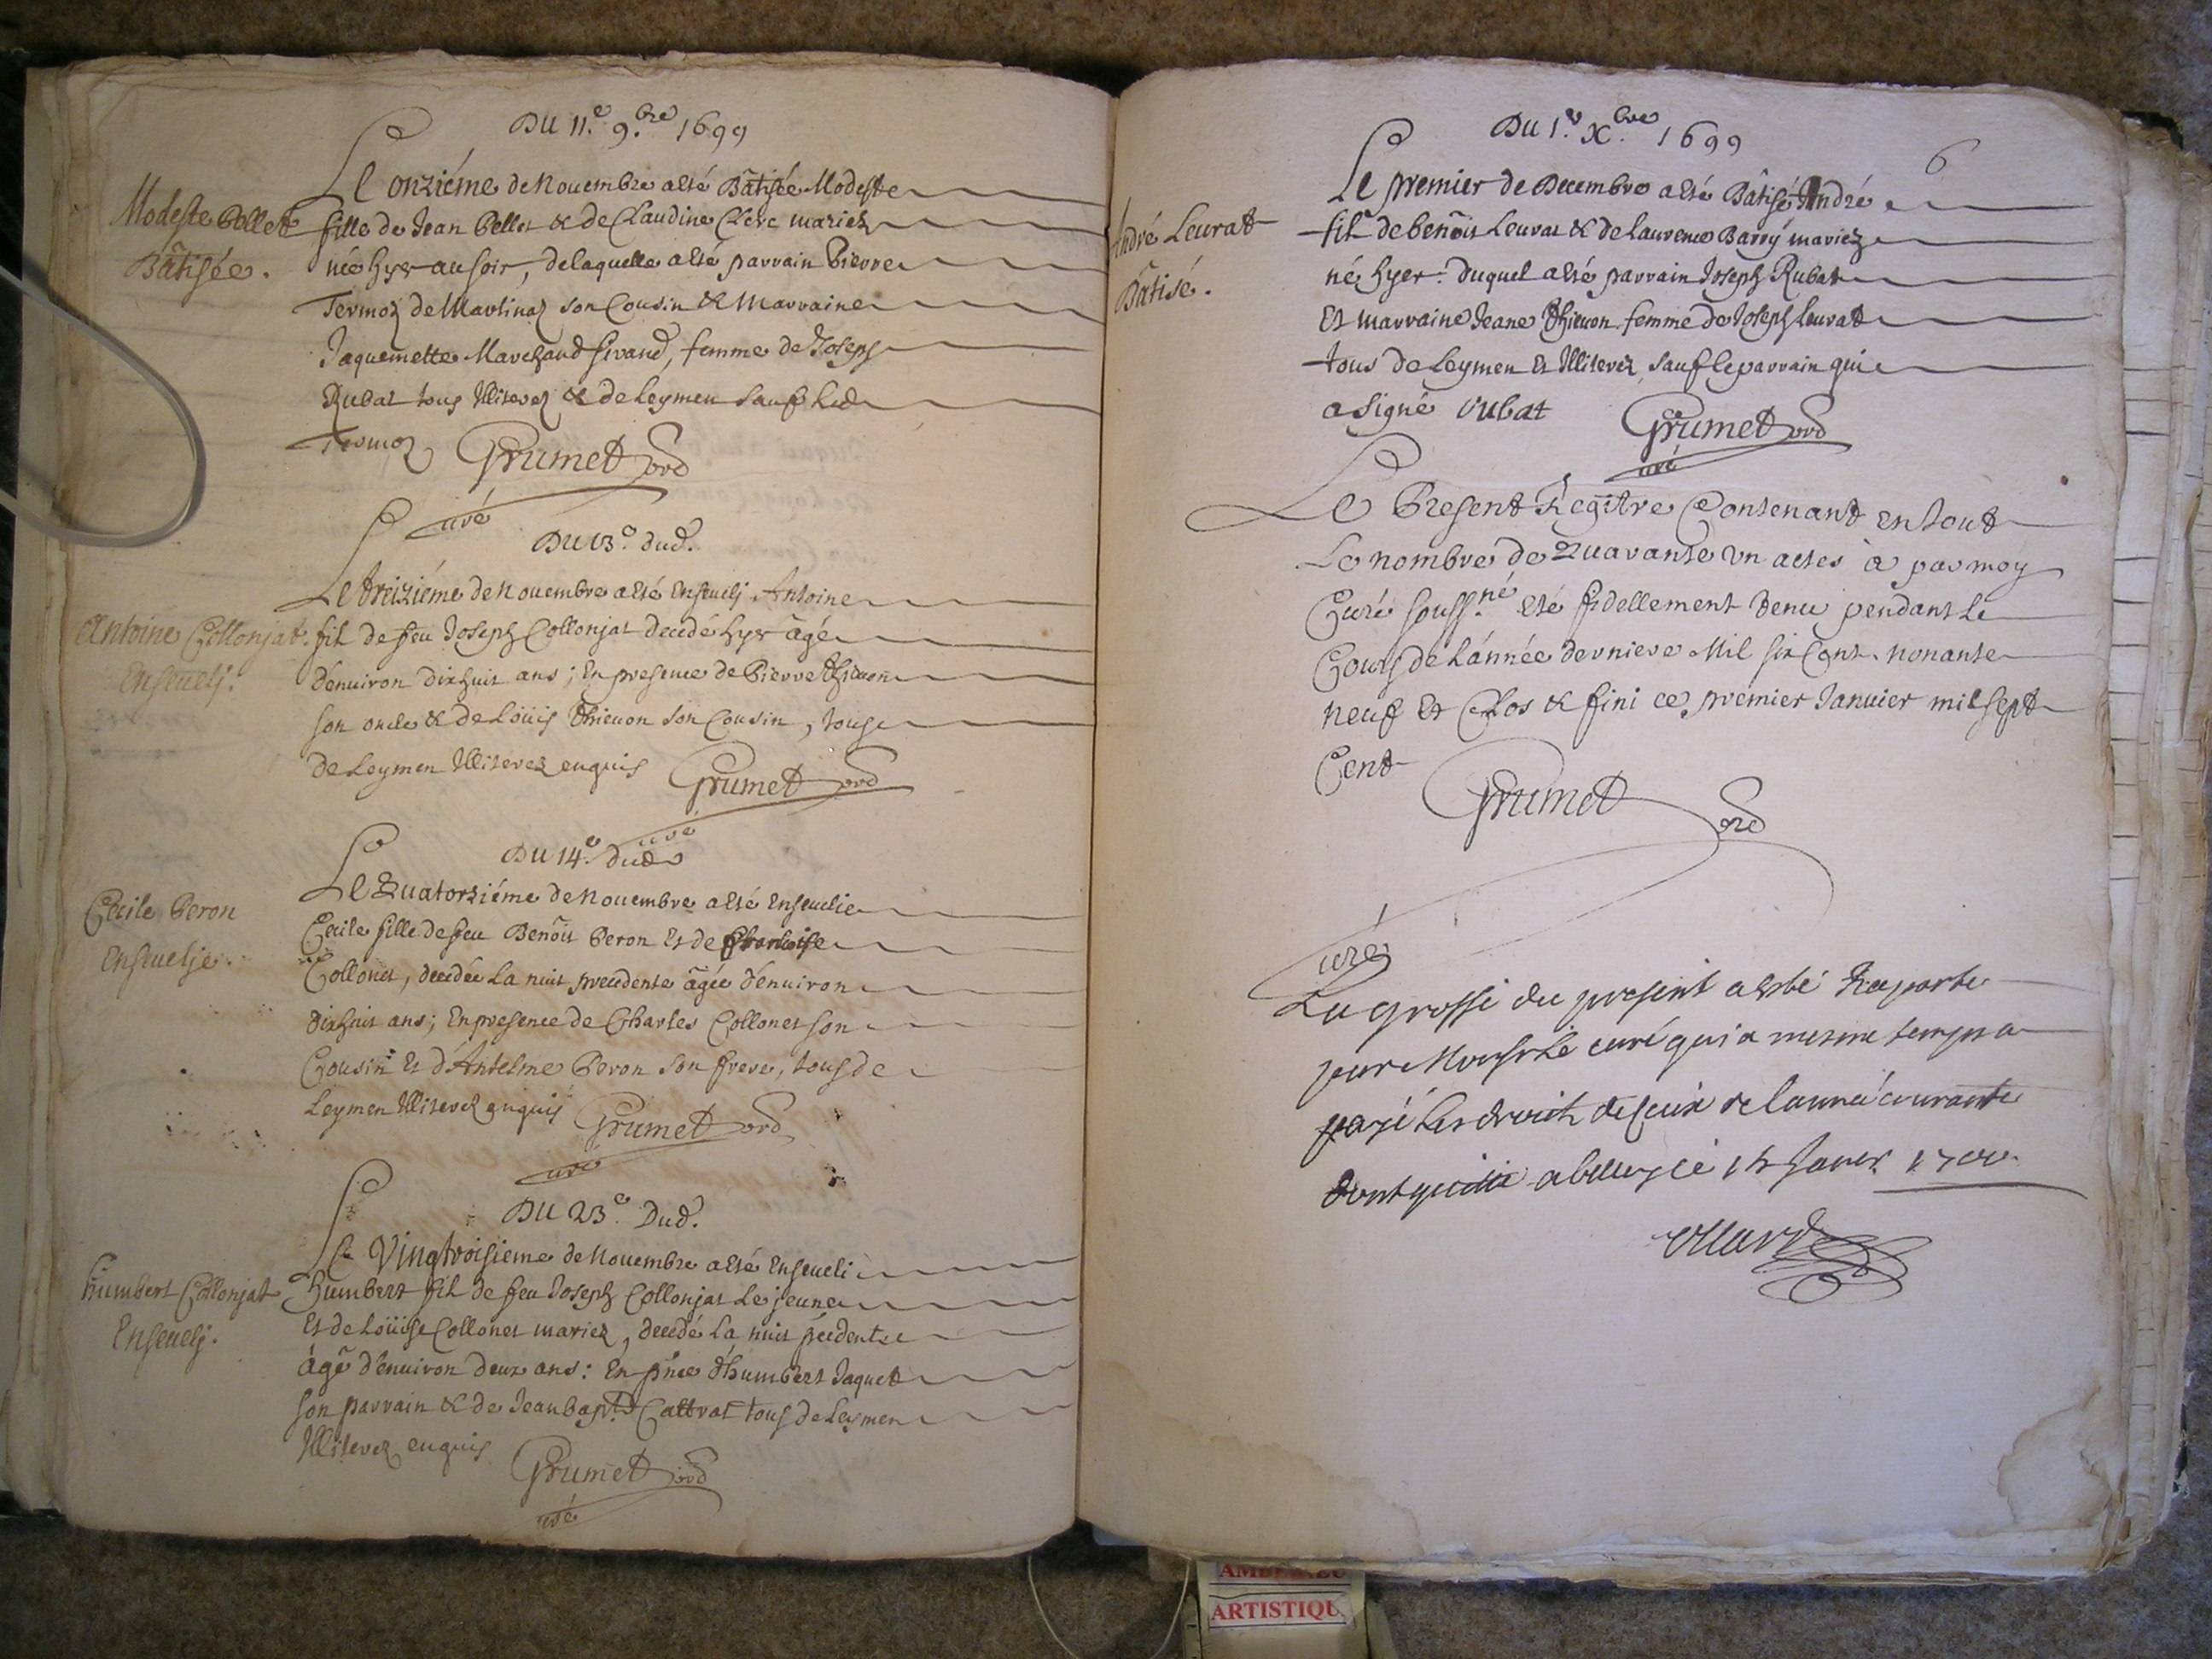 Du 11.e 9.bre 1699
Modeste Pellet
Bâtisée.
Le onziéme de Nouembre a eté Bâtisée Modeste
fille de Jean Pellet & de Claudine Clerc mariez
née hyer au soir, de laquelle a eté parrain Pierre
Termoz de Martinaz son Cousin & Marraine
Jaquemette Marchand Girand, femme de Joseph
Rubat tous Illiterez & de Leymen sauf led.
Termoz Grumet ord
curé
Du 13.e dud.
Antoine Collonjat
Enseuely.
Le treiziéme de Nouembre a eté Enseuely Antoine
fil de feu Joseph Collonjat decedé hyer âgé
d'enuiron dixhuit ans ; En presence de Pierre Thieuon
son oncle & de Loüis Thieuon son Cousin, tous
de Leymen Illiterez enquis Grumet ord
curé
Du 14.e dud.
Cecile Peron
Enseuelje.
Le Quatorziéme de Nouembre a eté Enseuelie
Cecile fille de feu Benoît Peron Et de francoise
Collonet, decedée La nuit precedente âgée d'enuiron
dixhuit ans ; En presence de Charles Collonet son
Cousin Et d'Antelme Peron son frere, tous de
Leymen Illiterez enquis Grumet ord
curé
Du 23.e Dud.
Humbert Collonjat
Enseuely.
Le Vingtroisieme de Nouembre a eté Enseueli
Humbert fil de feu Joseph Collonjat Le jeune
Et de Loüise Collonet mariez, decedé La nuit pcedente
âgé d'enuiron deux ans : En pnce d'humbert Jaquet
son parrain & de Jean bapt. Cattrat tous de Leymen
Illiterez enquis Grumet ord
curé
Du 1.er X.bre 1699
6
André Leurat
Bâtisé.
Le premier de Decembre a eté Bâtisé André
fil de benoît Leurat & de Laurence Barry mariez
né hyer : duquel a eté parrain Joseph Rubat
Et marraine Jeane Thieuon femme de Joseph Leurat
tous de Leymen Et Illiterez sauf le parrain qui
a signé rubat Grumet ord
curé
Le Present Regitre Contenant en tout
Le nombre de Quarante vn actes à par moy
Curé souss.né eté fidellement tenu pendant Le
Cours de L'année derniere Mil six Cent nonante
neuf Et Clos & fini ce premier Januier mil sept
Cent
Grumet ord
Curé
La grosse du present a esté raporte
par Monsr Le curé qui a mesme temps a
payé Les droits de ceux de lannée courante
dont quitte a belley ce 14 Janer 1700.
AMBERIEU
ARTISTIQU